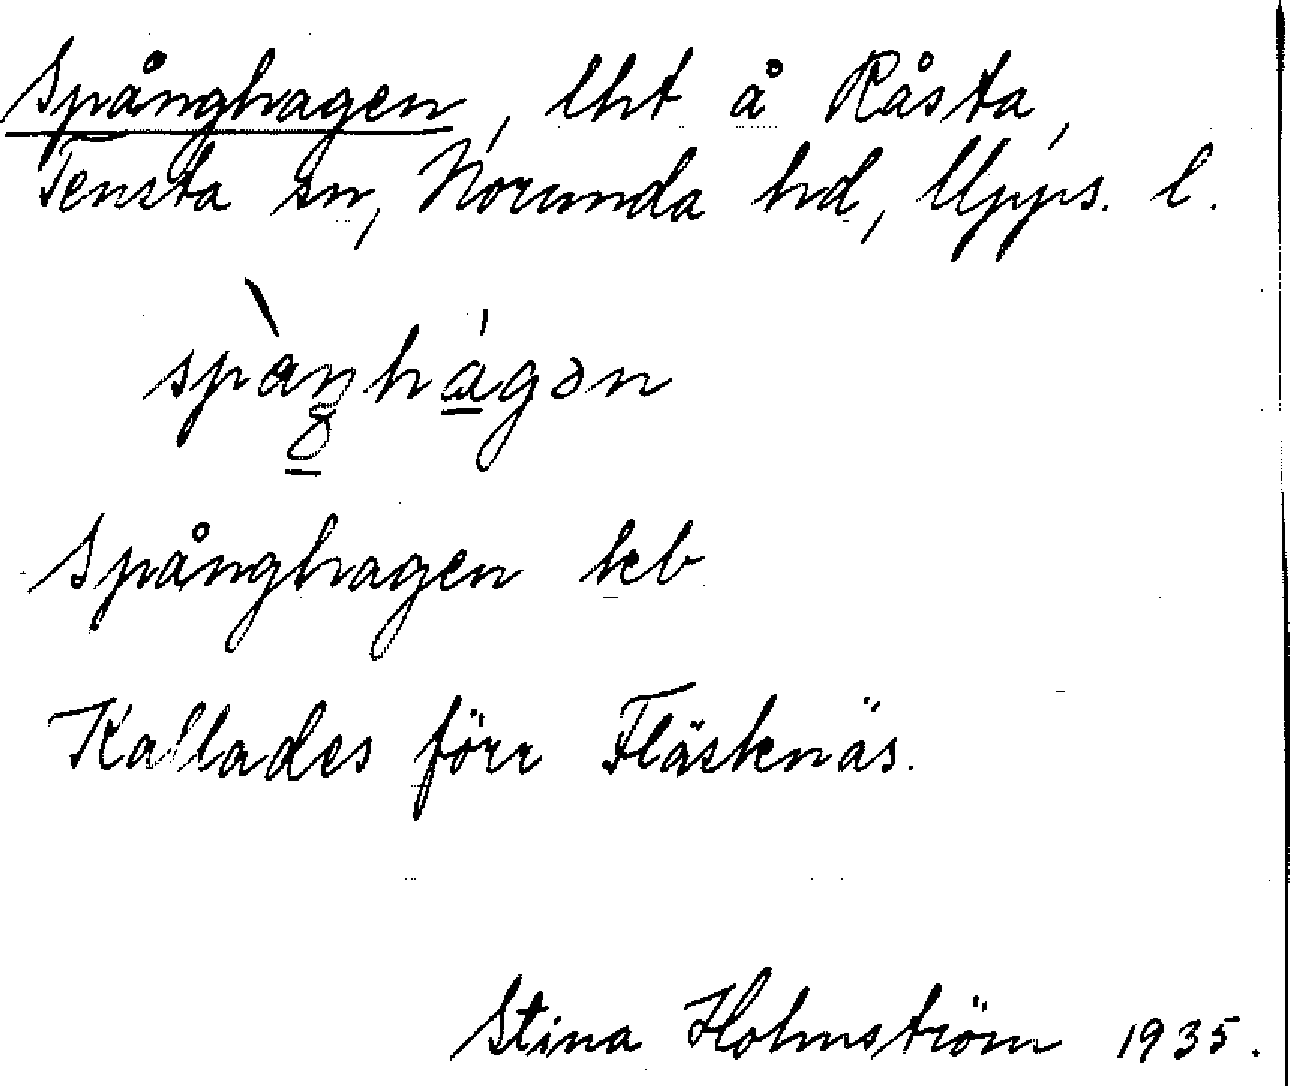 Spånghagen, lht å Råsta,
Tensta sn, Norunda hd, Upps. l.
spàŋhágən
Spånghagen kb
Kallades förr Fläsknäs.
Stina Holmström 1935.